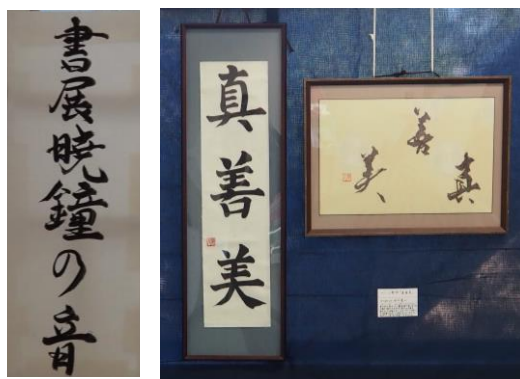 書展暁鐘の音
真善美
真
善
美